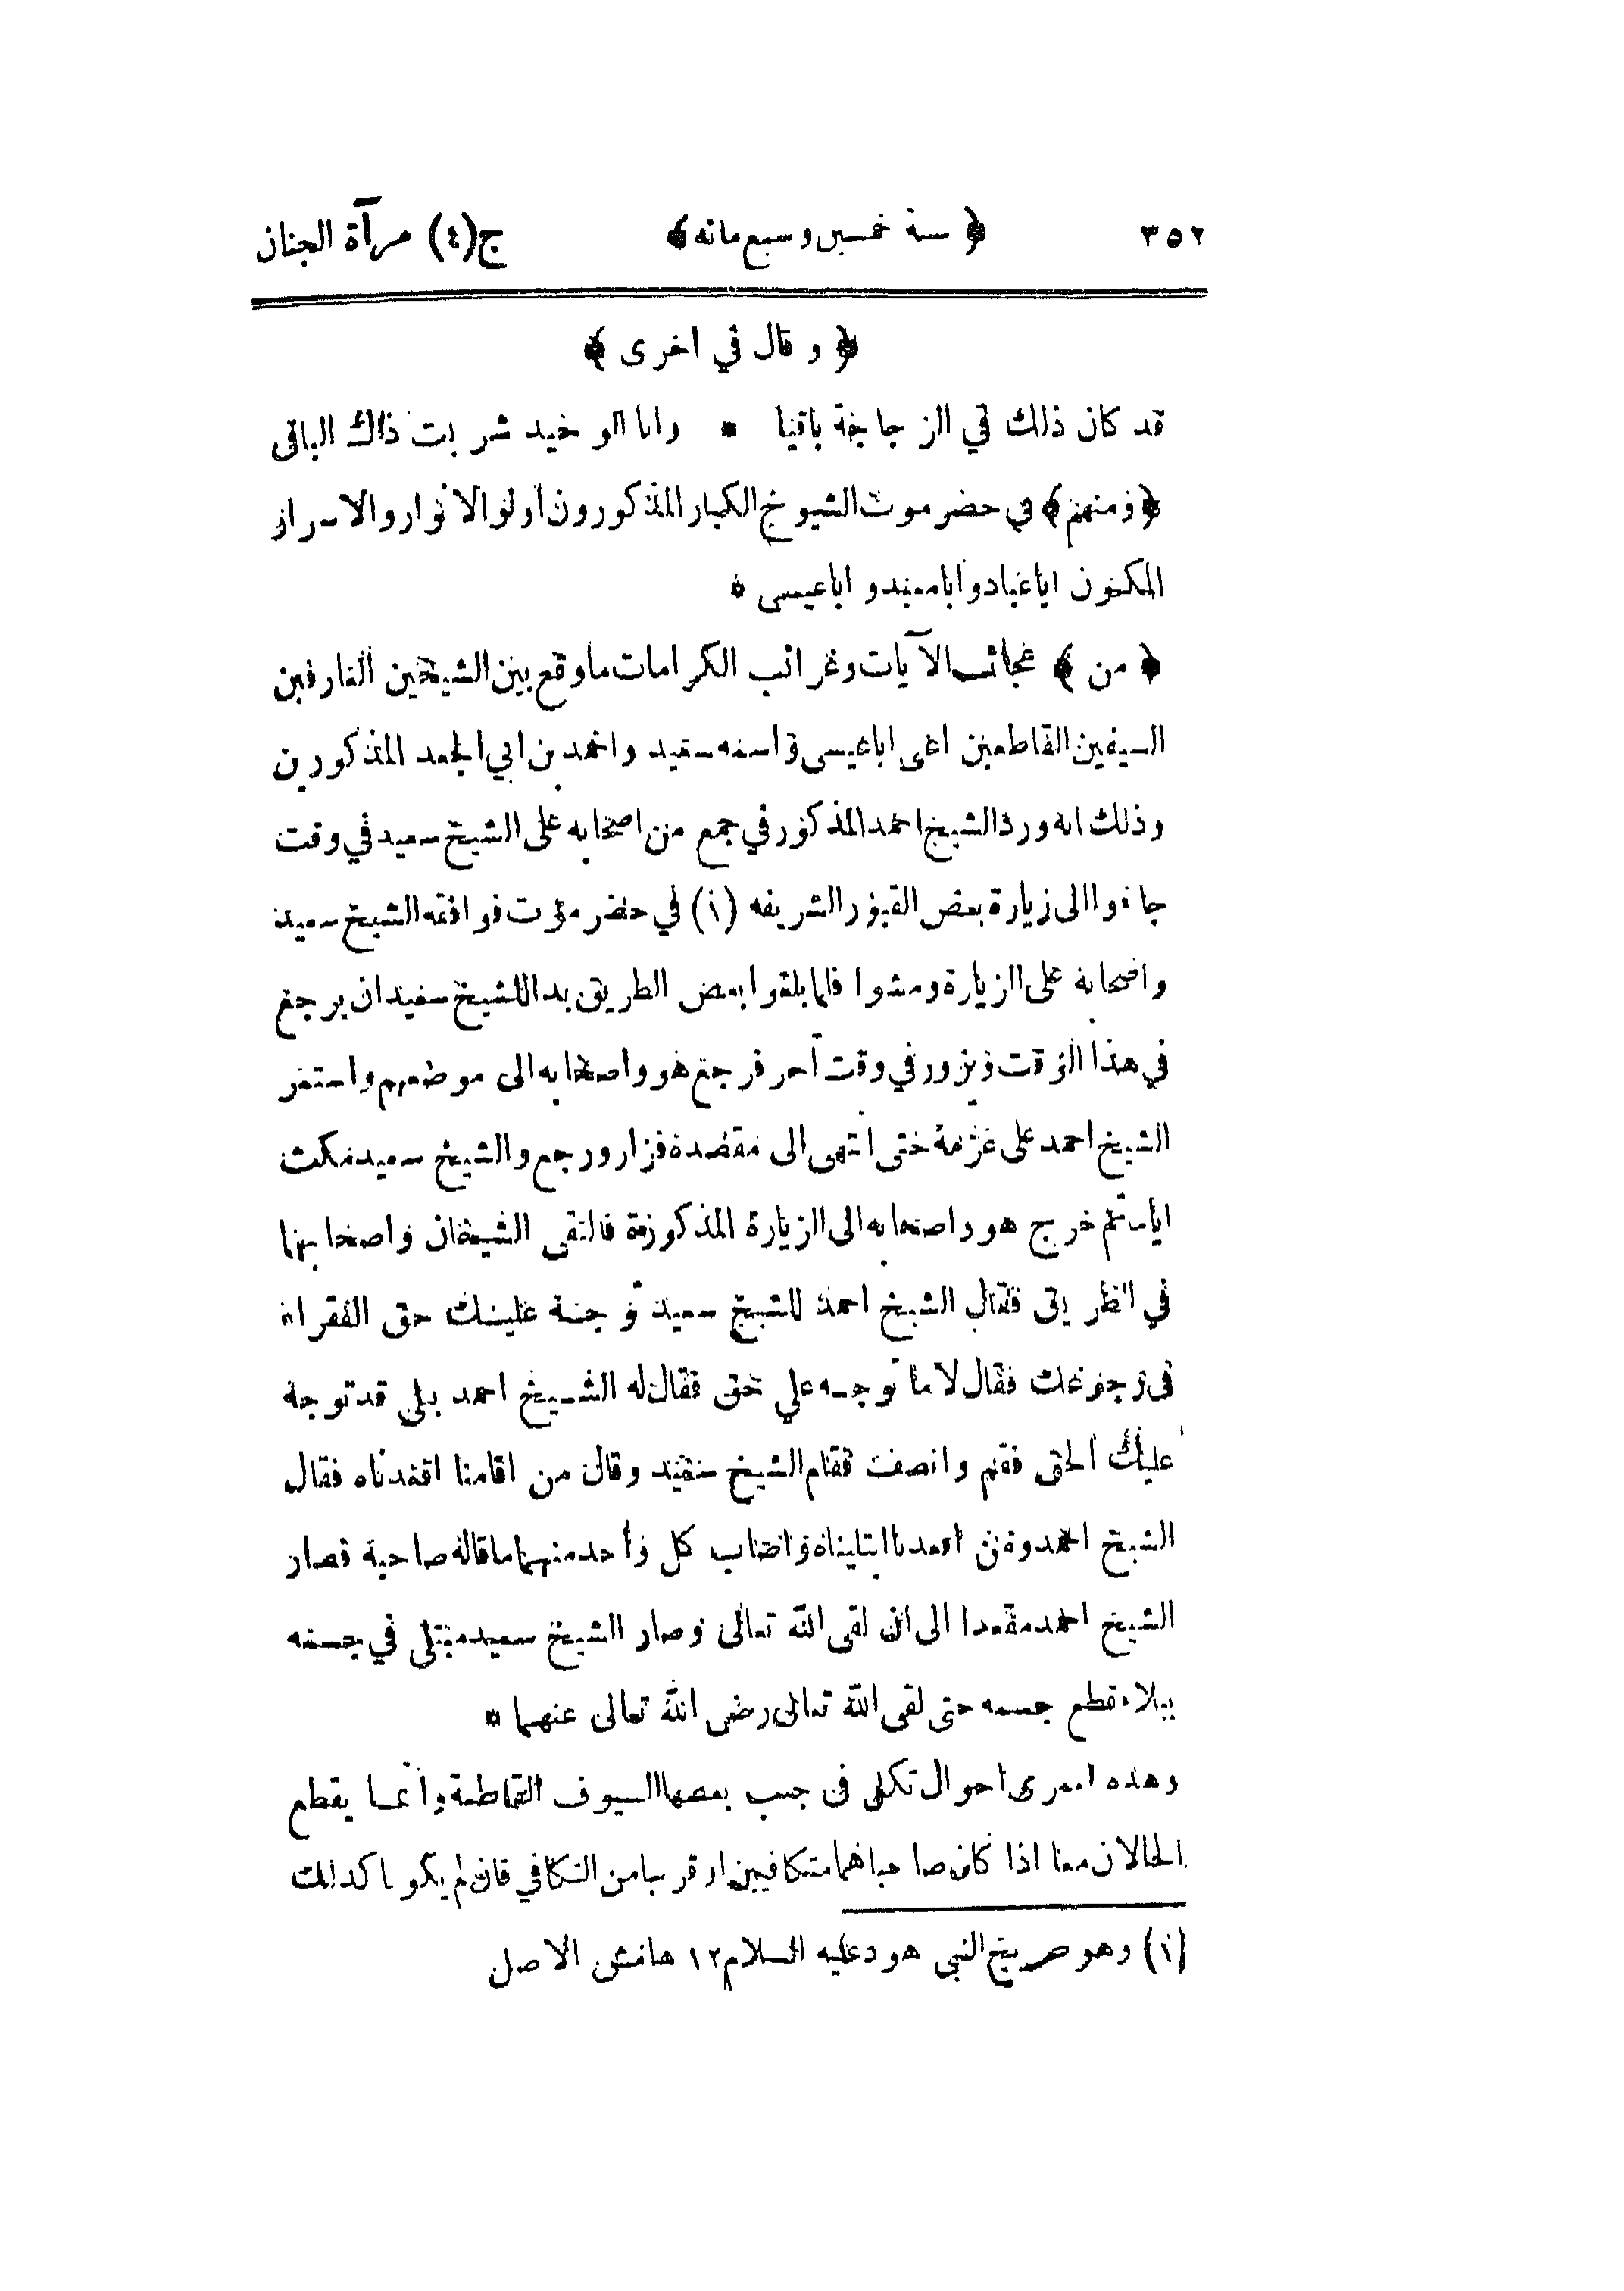 ٣٥٢ ﴿ سنة خمسين وسبع مائه ﴾ ج(٤) مرآة الجنان
﴿ و قال في اخرى ﴾
قد كان ذلك في الزجاجة باقيا * وانا الوحيد شربت ذاك الباقى
﴿ ومنهم ﴾ في حضر موت الشيوخ الكبار المذكورون اولو الانوار والاسرار
المكنون اباعباد وابامعبد و اباعيسى *
﴿ من ﴾ عجائب الآيات وغرائب الكرامات ما وقع بين الشيخين العارفين
السيفين القاطعين اعنى اباعيسى واسمه سعيد واحمد بن ابي الجعد المذكورين
وذلك انه ورد الشيخ احمد المذكور في جمع من اصحابه على الشيخ سعيد في وقت
جاءوا الى زيارة بعض القبور الشريفه (١) في حضر موت فوافقه الشيخ سعيد
واصحابه على الزيارة ومشوا فلما بلغوا بعض الطريق بدا للشيخ سعيد ان يرجع
في هذا الوقت ويزور في وقت آخر فرجع هو واصحابه الى موضعهم واستمر
الشيخ احمد على عزمه حتى انتهى الى مقصده فزار ورجع والشيخ سعيد مكث
اياما ثم خرج هو واصحابه الى الزيارة المذكورة فالتقى الشيخان واصحابهما
في الطريق فقال الشيخ احمد للشيخ سعيد توجه عليك حق الفقراء
فى رجوعك فقال لا ما توجه علي حق فقال له الشيخ احمد بلى قد توجه
عليك الحق فقم وانصف فقام الشيخ سعيد وقال من اقامنا اقعدناه فقال
الشيخ احمد ومن اقعدنا ابتليناه واصاب كل واحد منهما ما قاله صاحبه فصار
الشيخ احمد مقعدا الى ان لقى الله تعالى وصار الشيخ سعيد مبتلى في جسمه
ببلاء قطع جسمه حتى لقى الله تعالى رضى الله تعالى عنهما *
وهذه لعمرى احوال تكل فى جنب بعضها السيوف القاطعة وانما يقطع
الحالان معا اذا كان صاحباهما متكافيين او قربا من التكافي فان لم يكونا كذلك
(١) وهو ضريح النبي هود عليه السلام ١٢ هامش الاصل